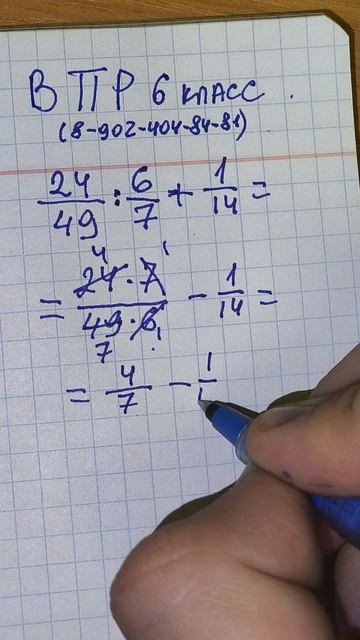 ВПР 6 класс.
(8-902-404-84-81)
24/49 : 6/7 + 1/14 =
= 24·7/49·6 - 1/14 =
4 1
7 1
= 4/7 - 1/1